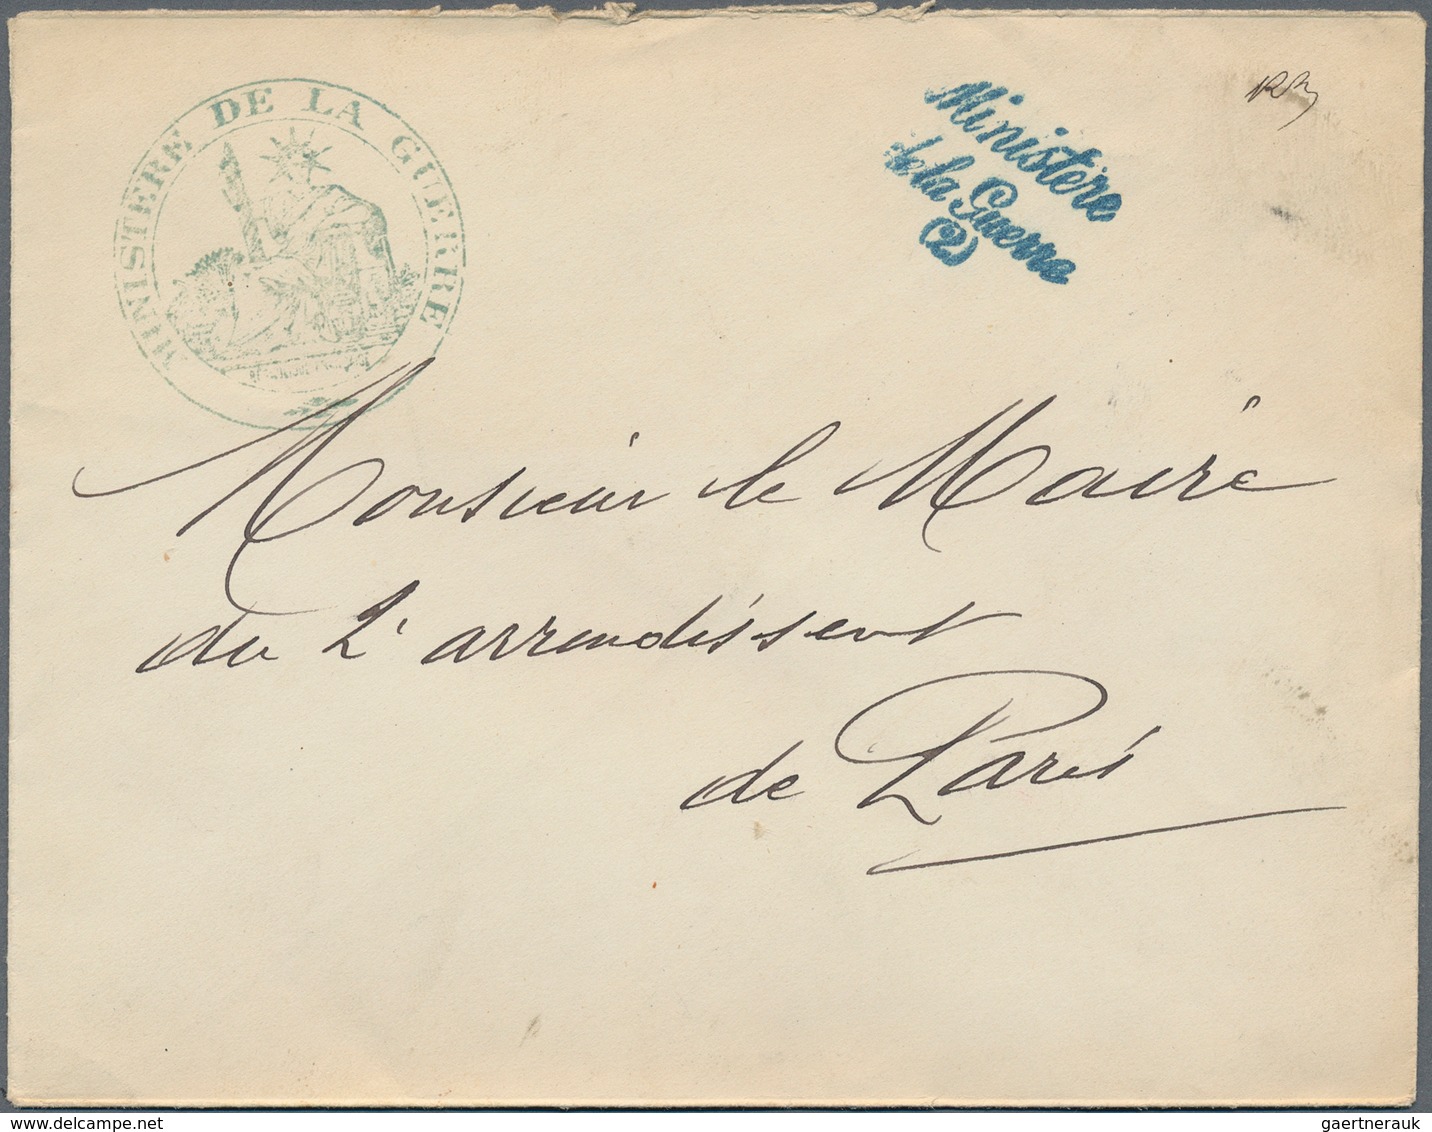 MINISTERE DE LA GUERRE
Ministère
de la Guerre
(2)
Monsieur le Maire
du 2e arrondissent
de Paris
delcampe.net
gaertnerauk